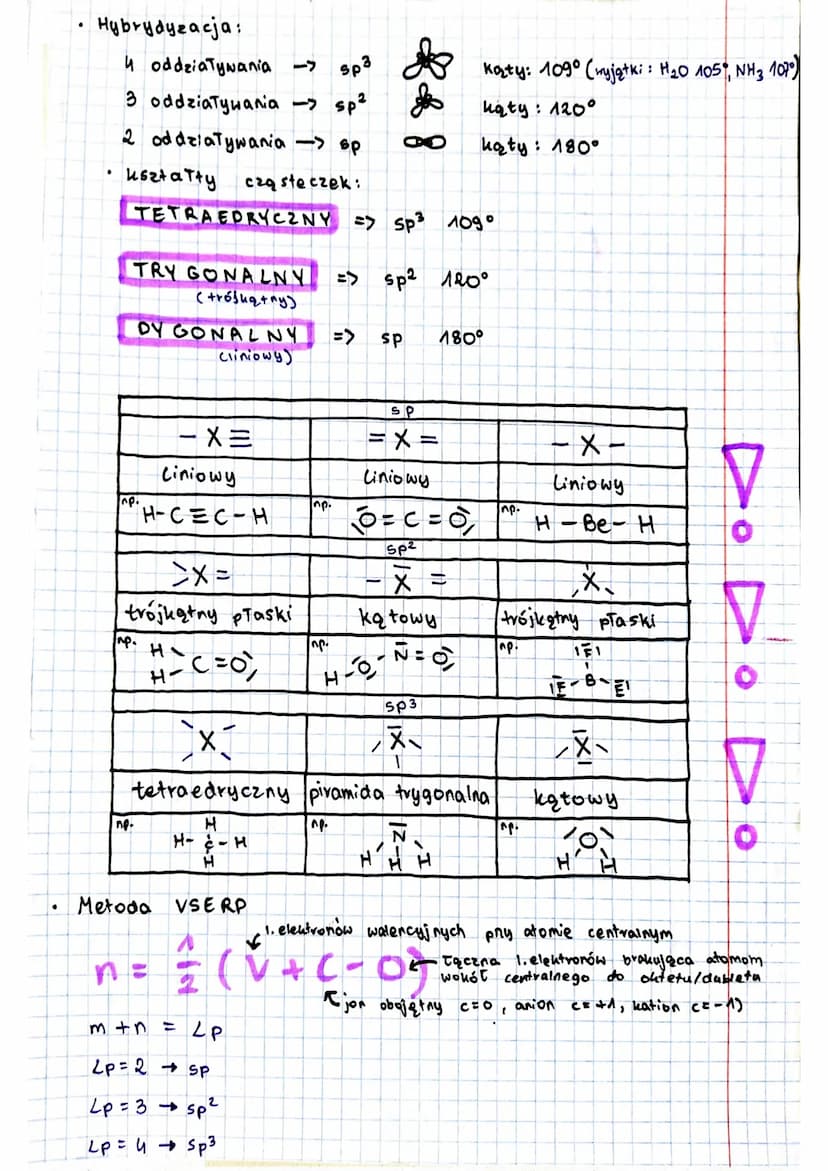 • Hybrydyzacja:
4 oddziaływania → sp³ kąty: 109° (wyjątki: H₂O 105°, NH₃ 107°)
3 oddziaływania → sp² kąty: 120°
2 oddziaływania → sp kąty: 180°
• kształty cząsteczek:
TETRAEDRYCZNY => sp³ 109°
TRYGONALNY => sp² 120°
(trójkątny)
DYGONALNY => sp 180°
(liniowy)
sp
– X ≡ = X = – X –
liniowy liniowy liniowy
np. H–C≡C–H np. O=C=O np. H–Be–H
sp²
>X= –X= X
trójkątny płaski kątowy trójkątny płaski
np. H np. np. F
H–C=O H–O–N=O F–B–F
sp³
X X X
tetraedryczny piramida trygonalna kątowy
np. H np. N np. O
H–C–H H H H H H
H
• Metoda VSERP
l. elektronów walencyjnych przy atomie centralnym
n = 1/2 (V + C – O) łączna l. elektronów brakująca atomom
wokół centralnego do oktetu/dubletu
jon obojętny c=0, anion c=+1, kation c=-1)
m + n = Lp
Lp = 2 → sp
Lp = 3 → sp²
Lp = 4 → sp³